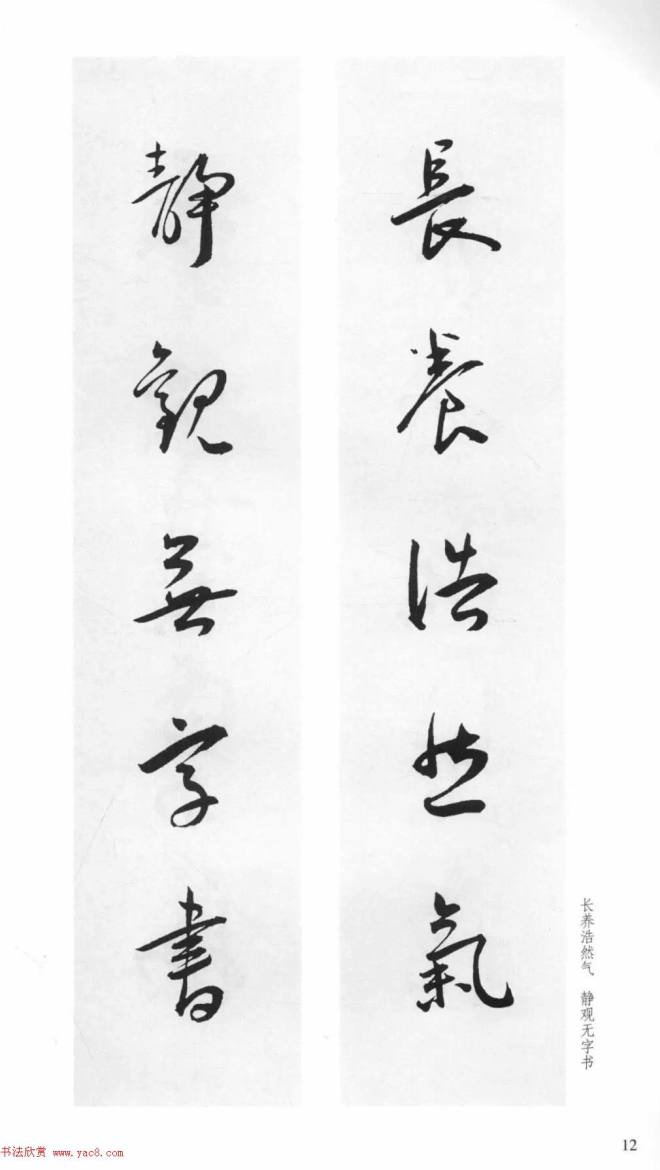 長養浩然氣
靜觀無字書
长养浩然气 静观无字书
12
书法欣赏 www.yac8.com